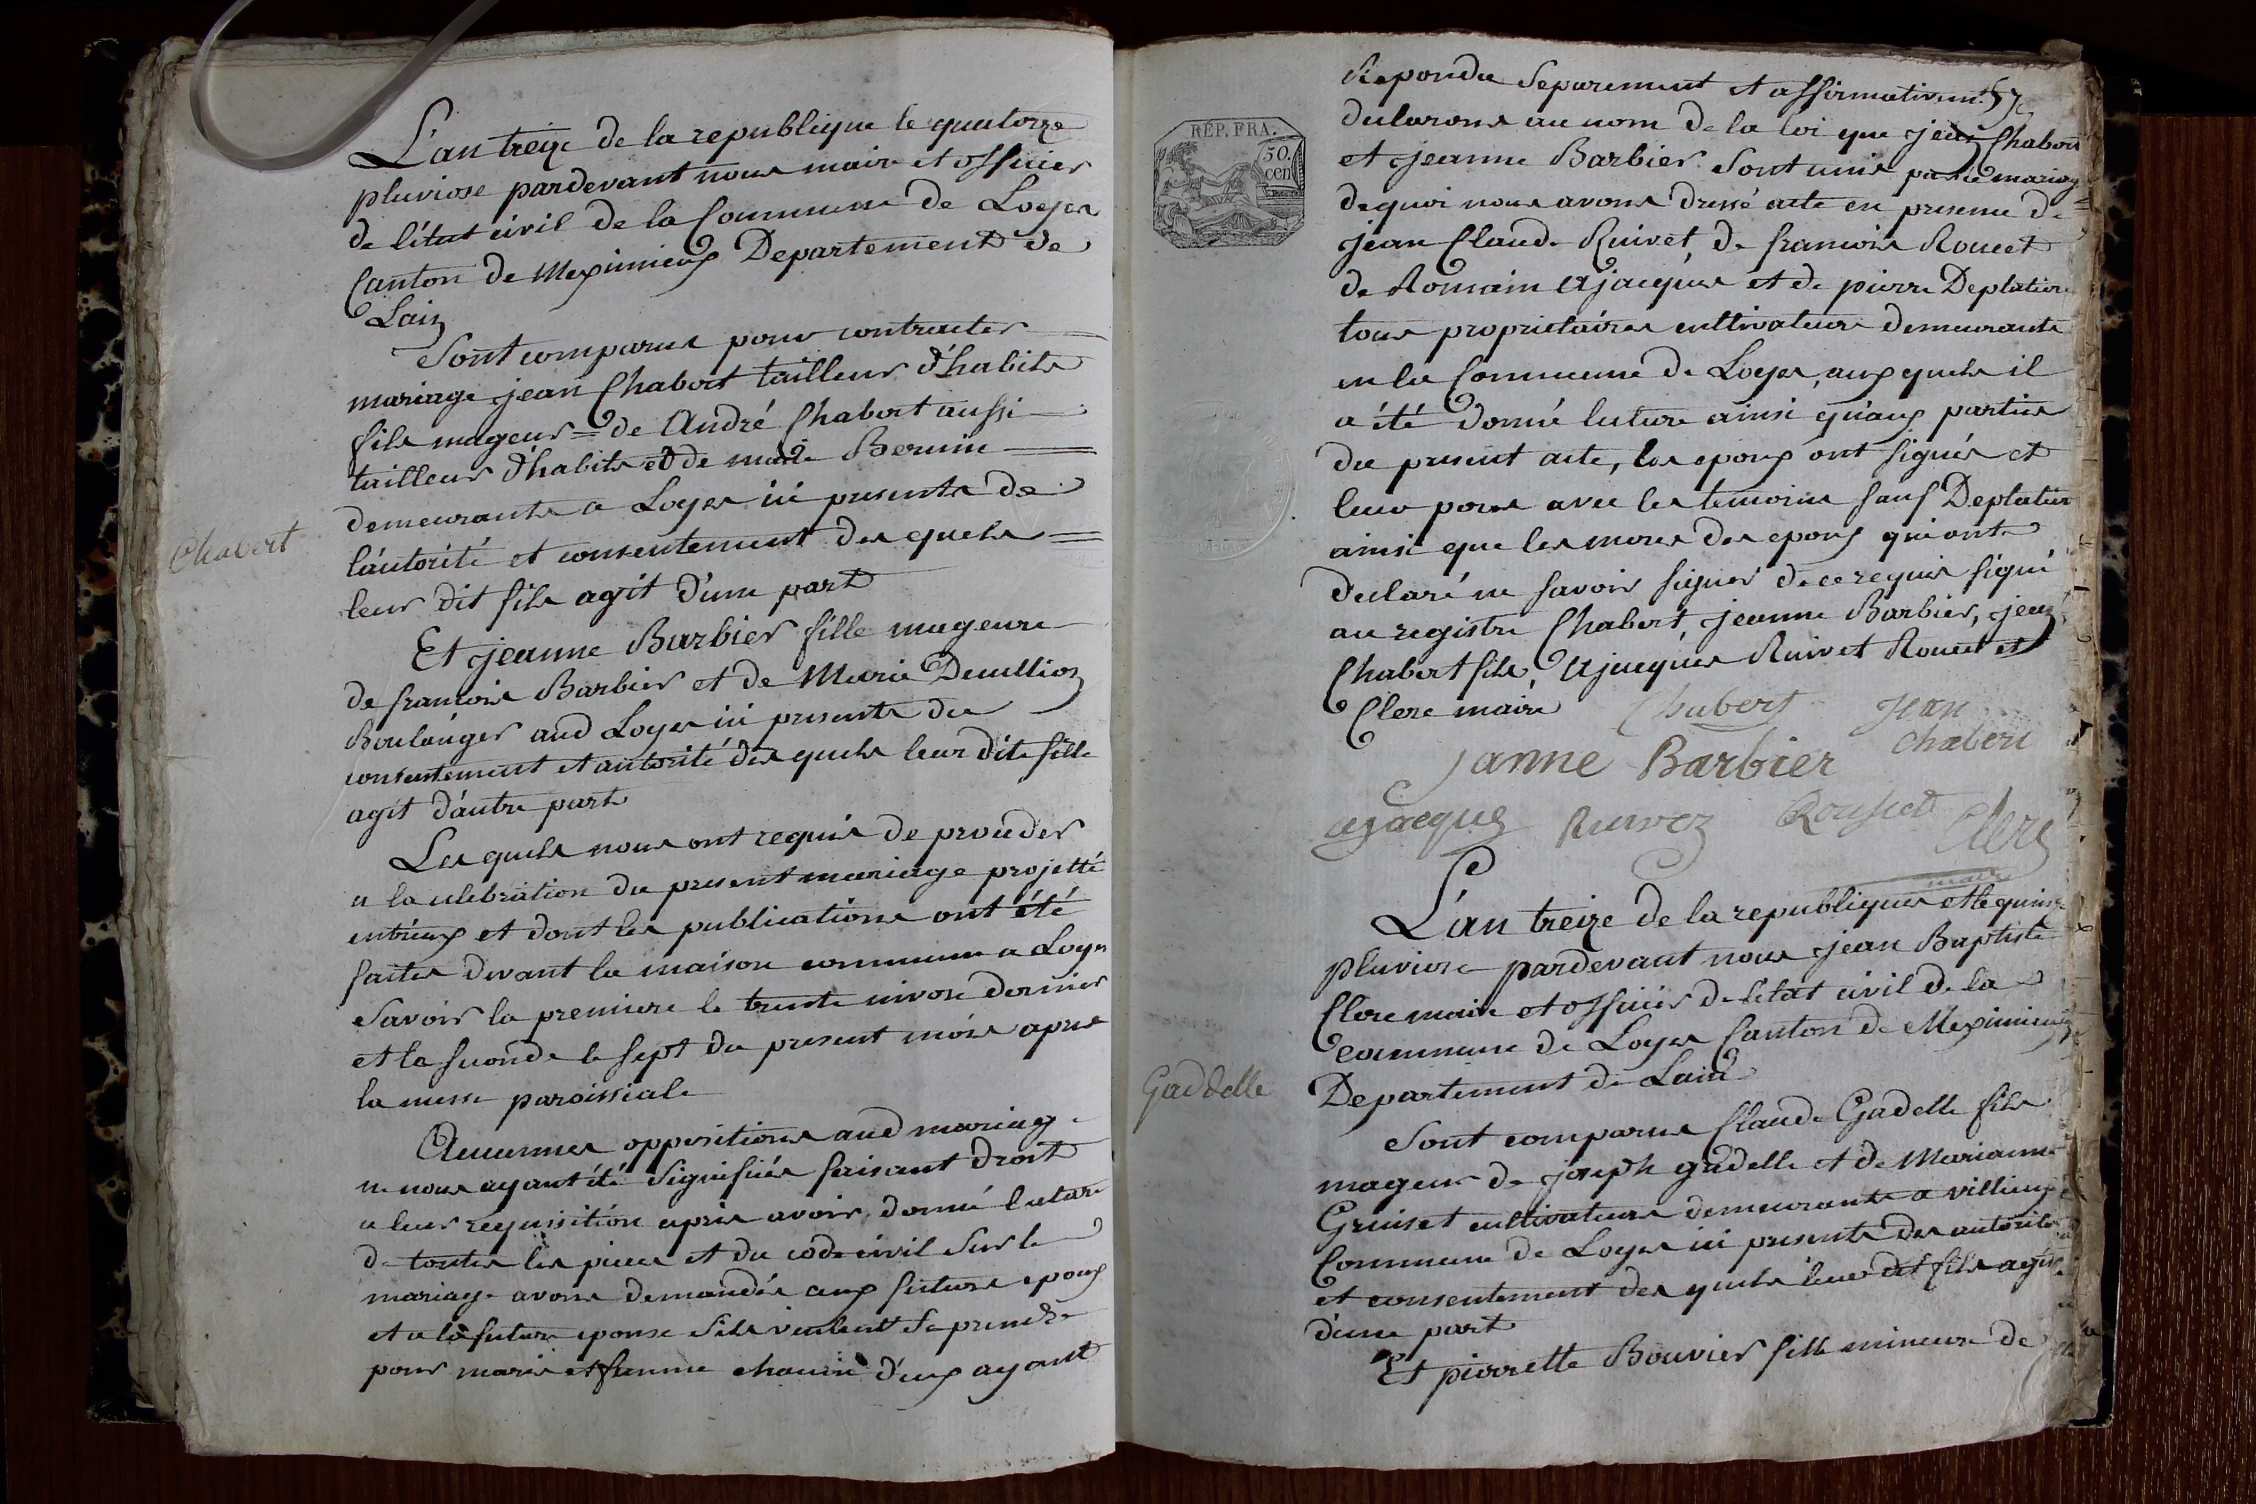 L'an treize de la republique le quatorze
pluviose pardevant nous maire et officier
de l'état civil de la Commune de Loyes
Canton de Meximieux Departement de
Lain
Sont comparus pour contracter
mariage jean Chabert tailleur d'habits
fils mageur = de André Chabert aussi
tailleur d'habits et de marie Bernin
demeurants a Loyes ici presents de
láutorité et consentement des quels
leur dit fils agit d'une part
Chabert
Et jeanne Barbier fille mageure
de francois Barbier et de Marie Decullion
Boulánger aud Loyes ici presents du
consentement et autorité des quels leur dite fille
agit d'áutre part
Les quels nous ont requis de proceder
a la celebration du present mariage projetté
entr'eux et dont les publications ont été
faites devant la maison commune a Loyes
Savoir la premiere le trente nivose dernier
et la seconde le sept du present mois apres
la messe paroissiale
Aucunnes oppositions aud mariage
ne nous ayant été Signifiées faisant droit
a leur requisition apres avoir donné lecture
de toutes les pieces et du code civil Sur le
mariage avons demandés aux future epoux
et a la future epouse S'ils veulent Se prendre
pour maris et femme chacun d'eux ayant
Repondu Separement et affirmativemt 57
declarons au nom de la loi que jean Chabert
et jeanne Barbier Sont unis par le mariage
RÉP. FRA.
50.
cen
de quoi nous avons dressé acte en presence de
jean Claude Ruivet, de francois Roucet
de Romain Ajacques et de pierre Deplatiere
tous proprietaires cultivateurs demeurants
en la Commune de Loyes, aux quels il
a été donné lecture ainsi qu'aux parties
du present acte, les epoux ont signés et
leur peres avec les temoins sauf Deplatiere
ainsi que les meres des epoux qui ont
declaré ne savoir signer de ce requis signé
au registre Chabert, jeanne Barbier, jean
Chabert fils, Ajacques Ruivet Roucet et
Clerc maire
Chabert Jean
Chabert
Janne Barbier
ajacques Ruivez Rousset
Clerc
maire
L'an treize de la republique et le quinze
pluviose pardevant nous jean Baptiste
Clerc maire et officier de l'etat civil de la
Commune de Loyes Canton de Meximieux
Departement de Lain
Gaddelle
Sont comparus Claude Gadelle fils
mageur de joseph gadelle et de Marianne
Gruiset cultivateurs demeurants a villieux
Commune de Loyes ici presents des autorité
et consentement des quels leur dit fils agit
d'une part
Et pierrette Bouvier fille mineure de